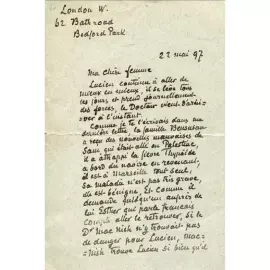 London W.
62 Bath road
Bedford Park
22 mai 97
Ma chère femme
Lucien continue à aller de
mieux en mieux, il se lève tous
les jours et prend journellement
des forces, le Docteur vient d'arri-
ver à l'instant.
Comme je t'écrivais dans ma
dernière lettre la famille Bensusan
reçu des nouvelles mauvaises de
Sam qui était allé en Palestine
il a attrapé la fièvre Thyphoïde
à bord du navire en revenant,
il est à Marseille tout seul,
sa maladie n'est pas très grave,
elle est bénigne, Et comme il
demande quelqu'un auprès de
lui Esther qui parle français
compte aller le retrouver, si le
Dr Mac Nish n'y trouvait pas
de danger pour Lucien, Mac-
Nish trouve Lucien si bien qu'il